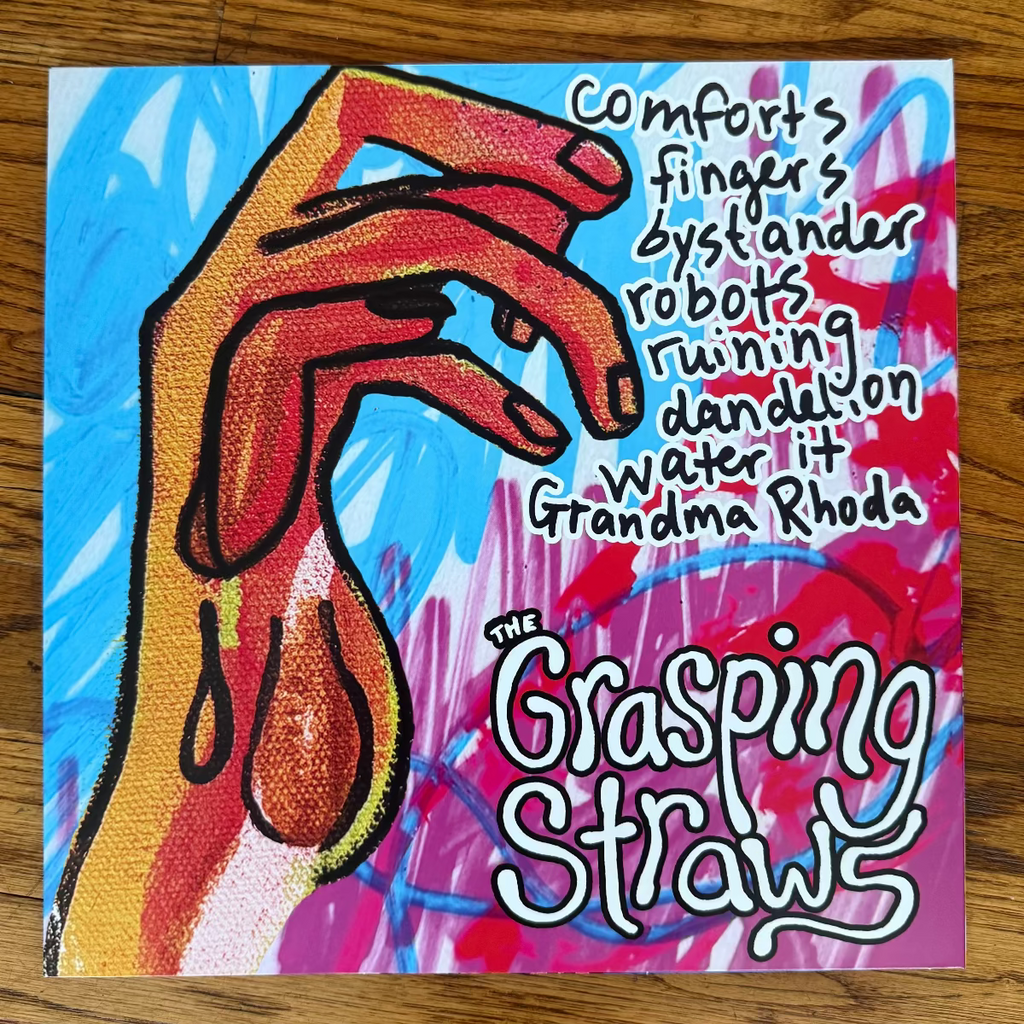 comforts
fingers
bystander
robots
ruining
dandelion
water it
Grandma Rhoda
THE
Grasping
Straws